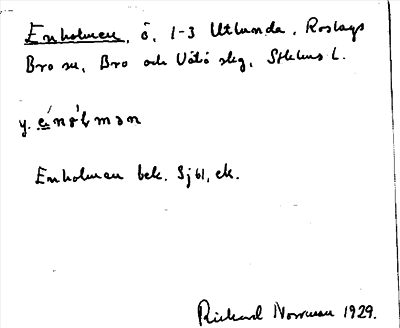 Enholmen, ö, 1-3 Utlunda, Roslags
Bro sn, Bro och Vätö skg, Sthlms l.
y.
Enholmen bek. Sjbl, ek.
Rickard Norrman 1929.